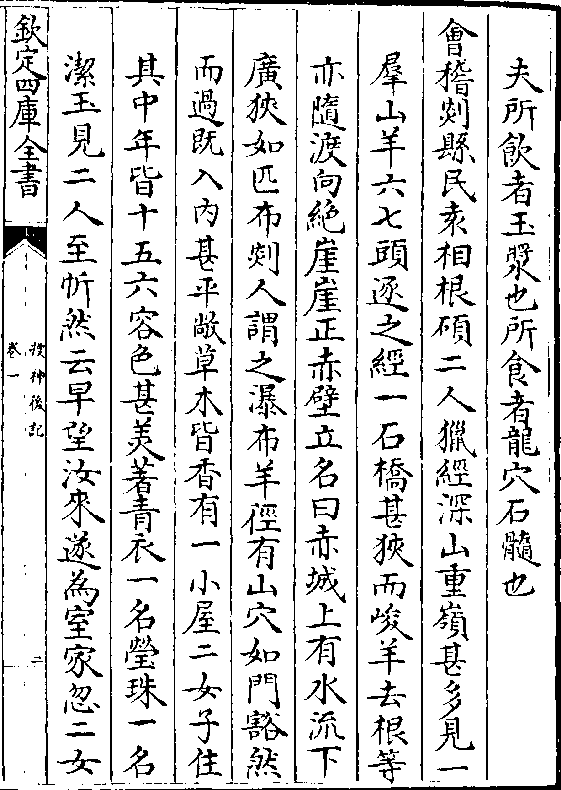 夫所飲者玉漿也所食者龍穴石髓也
會稽剡縣民袁相根碩二人獵經深山重嶺甚多見一
羣山羊六七頭逐之經一石橋甚狹而峻羊去根等
亦隨渡向絕崖崖正赤壁立名曰赤城上有水流下
廣狹如匹布剡人謂之瀑布羊徑有山穴如門豁然
而過既入內甚平敞草木皆香有一小屋二女子住
其中年皆十五六容色甚美著青衣一名瑩珠一名
潔玉見二人至忻然云早望汝來遂為室家忽二女
欽定四庫全書
搜神後記
卷一
二